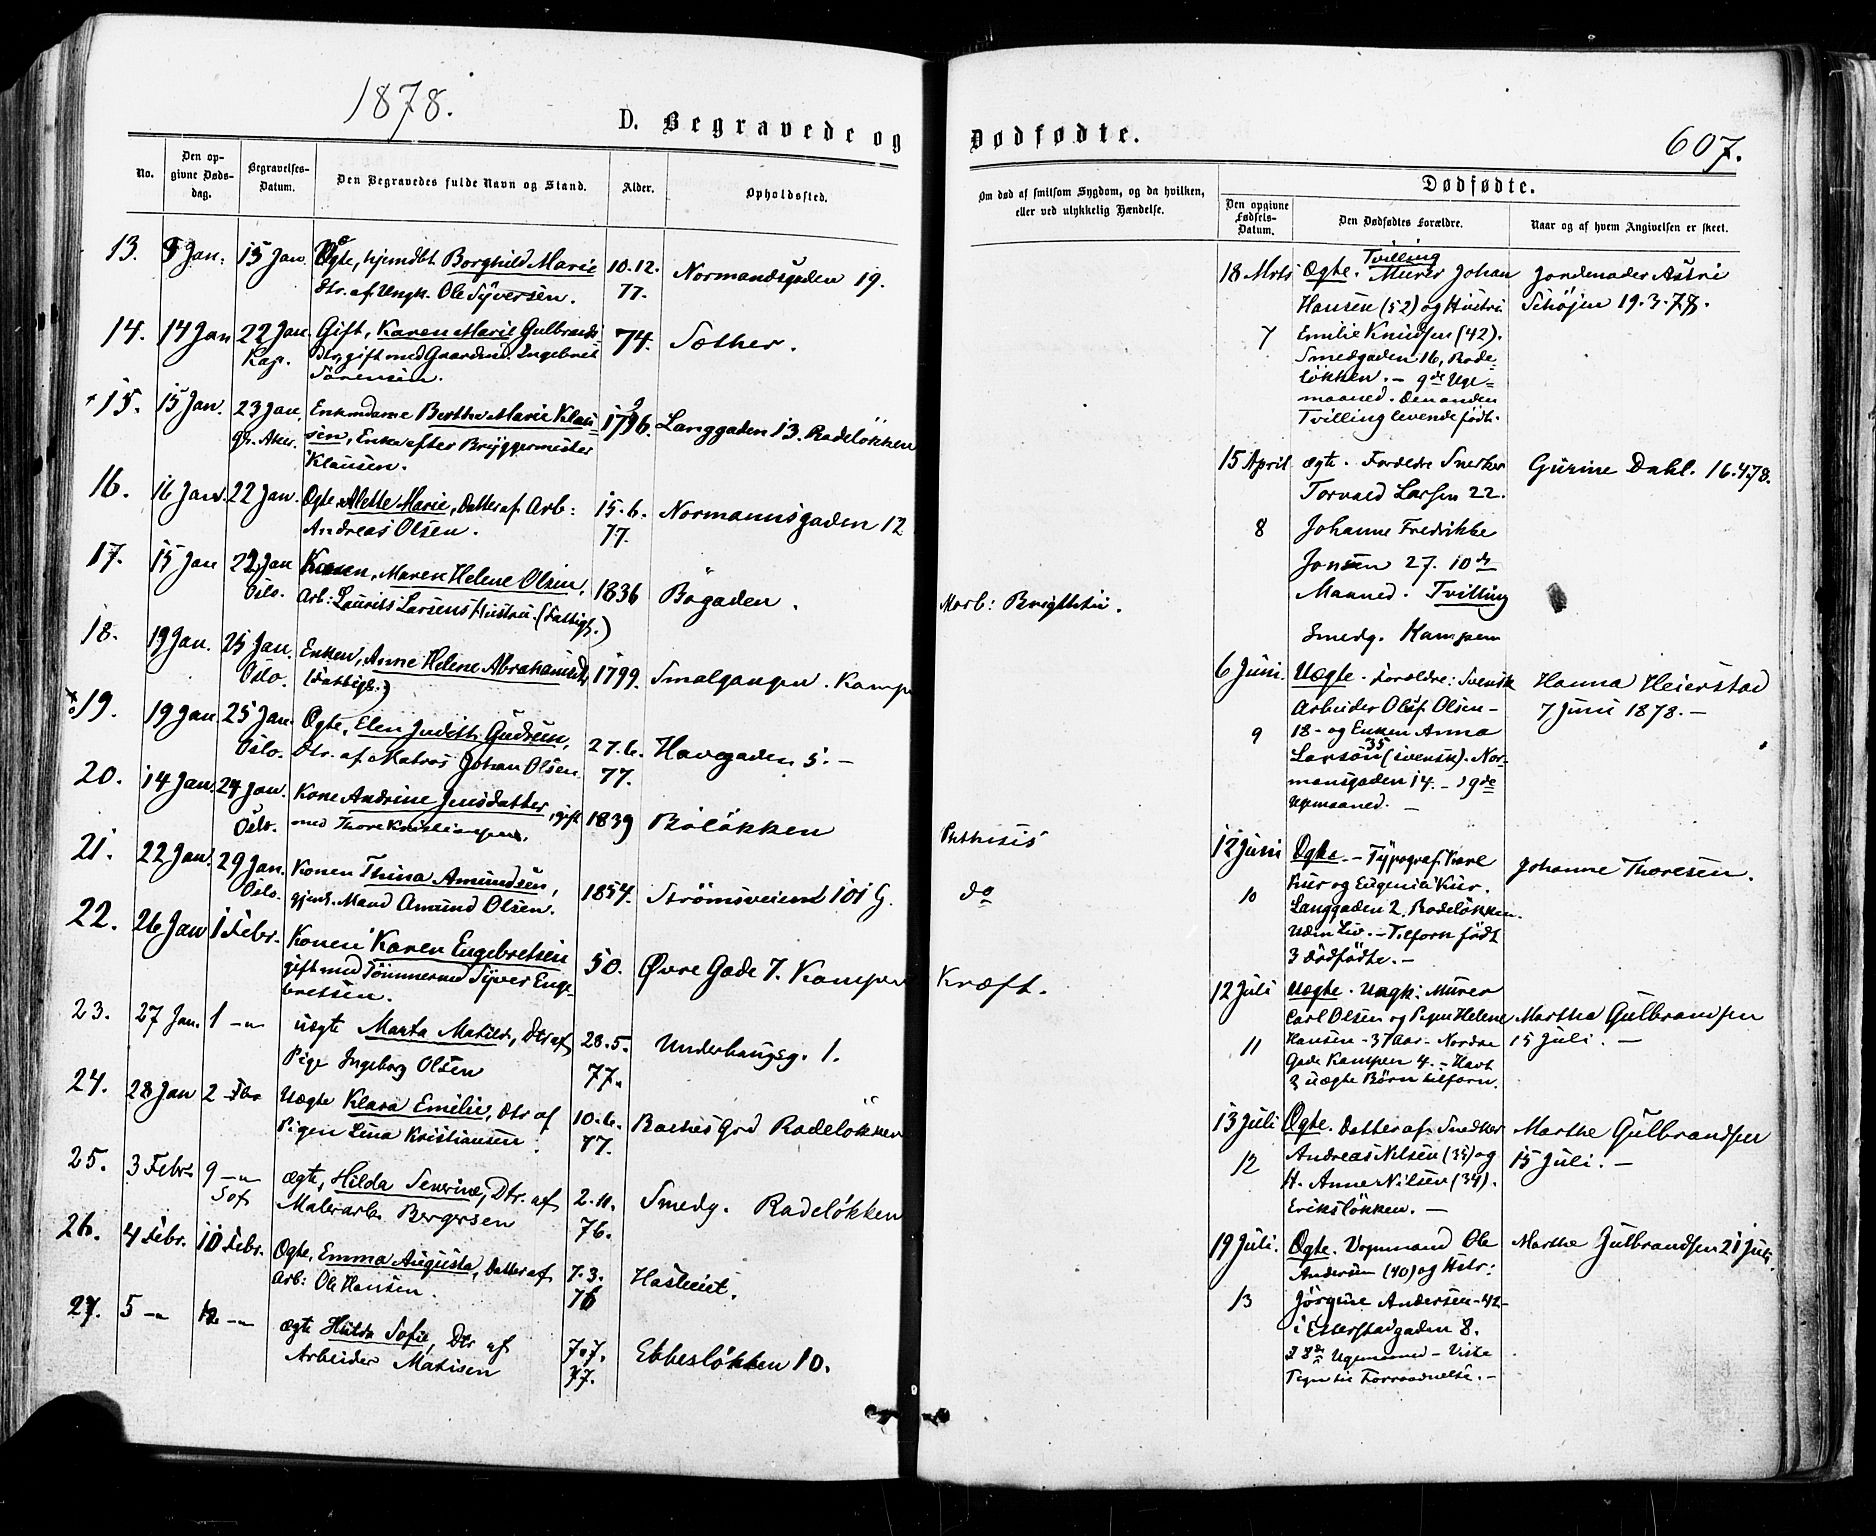 1878.
D. Begravede og
No.
Den op-
givne Døds-
dag.
Begravelses-
Datum.
Den Begravedes fulde Navn og Stand.
Alder.
Opholdssted.
13. 8 Jan. 15 Jan. Ægte, hjemdbt Borghild Marie 10.12. Normandsgaden 19.
Dtr. af Ungk. Ole Syversen. 77.
14. 14 Jan 22 Jan. Gift, Karen Marie Gulbrands- 74. Sæther.
Kap. Dtr, gift med Gaardmd. Ingebret
Sørensen.
15. 15 Jan. 23 Jan. Enkemdame Berthe Marie Klau- 1796. Langgaden 13. Rodeløkken
gr. Aker. sen, Enke efter Bryggermester
Klausen.
16. 16 Jan. 22 Jan. Ægte, Alette Marie, Datter af Arb: 15.6. Normannsgaden 12
Andreas Olsen. 77.
17. 15 Jan 22 Jan Konen, Maren Helene Olsen, 1836 Bøgaden.
Oslo. Arb: Laurits Larsens Hustru. (Fattigh.)
18. 19 Jan. 25 Jan. Enken, Anne Helene Abrahamsdt 1799. Smalgangen. Kampe
Oslo. (Fattigh.)
19. 19 Jan. 25 Jan. Ægte, Elen Judith Gudrun, 27.6. Havegaden 5. —
Oslo. Dtr. af Matros Johan Olsen. 77.
20. 14 Jan. 24 Jan. Kone Andrine Jensdatter, gift 1839 Bøløkken
Oslo. med Thore Kristiansen.
21. 22 Jan. 29 Jan. Konen Thina Amundsen, 1854. Strømsveien 101 G.
Oslo. gjenl. Mand Amund Olsen.
22. 26 Jan 1 Febr. Konen Karen Engebretsen 50. Øvre Gade 7. Kampen
gift med Tømmermd Syver Enge-
bretsen.
23. 27 Jan. 1 —"— uægte Marta Matilde, Dtr af 28.5. Underhaugsg. 1.
Pige Ingeborg Olsen 77.
24. 28 Jan 2 Fbr Uægte Klara Emilie, Dtr af 10.6. Backes Grd Rodeløkken
Pigen Lina Kristiansen. 77.
25. 3 Febr. 9 —"— ægte, Hilda Severine, Dtr. af 2.11. Smedg. Rodeløkken
Sof Malerarb. Bergersen 76.
26. 4 Febr. 10 Febr. Ægte, Emma Augusta, Datter af 7.3. Hasleeiet.
Arb: Ole Hansen. 76
27. 5 —"— 12 —"— ægte Hulda Sofie, Dtr af 7.7. Ebbesløkken 10.
Arbeider Matisen 77.
Dødfødte.
607.
Om død af smitsom Sygdom, og da hvilken,
eller ved ulykkelig Hændelse.
Dødfødte.
Den opgivne
Fødsels-
Datum.
Den Dødfødtes Forældre.
Naar og af hvem Angivelsen er skeet.
Morb: Brigthtii.
Phthisis
do
Kræft.
Tvilling
18 Mrts Ægte. Murer Johan Jordemoder Astri
Hansen (52) og Hustru Schøjen 19.3.78.
7 Emilie Knudsen (42).
Smedgaden 16, Rode-
løkken. — 9de Uge-
maaned. Den anden
Tvilling levende født.
15 April ægte. Forældre Snedker Gurine Dahl. 16.4.78.
Torvald Larsen 22.
8 Johanne Fredrikke
Jonsen 27. 10de
Maaned. Tvilling
Smedg. Kampen
6 Juni. Uægte. Forældre: Svensk Hanna Heierstad
Arbeider Olof Olsen — 7 Juni 1878. —
9 18 — og Enken Anna
Larson 35 (svensk). Nor-
mansgaden 14. — i 9de
Ugemaaned. —
12 Juni Ægte. — Typograf Karl Johanne Thoresen.
10 Kur og Eugenie Kur.
Langgaden 2, Rodeløkken.
Uden Liv. — Tilforn født
3 dødfødte. —
12 Juli Uægte. Ungk: Murer
Carl Olsen og Pigen Helene Martha Gulbrandsen
11 Hansen — 37 Aar — Nordre 15 Juli. —
Gade Kampen 4. — Havt
2 uægte Børn tilforn.
13 Juli Ægte. Datter af Snedker Marthe Gulbrandsen
12 Andreas Nilsen (35) og 15 Juli. —
H. Anne Nilsen (34).
Eriksløkken. —
19 Juli. Ægte. Vognmand Ole Marthe Gulbrandsen 21 Juli.
Andersen (40) og Hstr:
13 Jørgine Andersen — 42 —
i Etterstadgaden 8.
I 8de Ugemaaned — Viste
Tegn til Forraadnelse. —